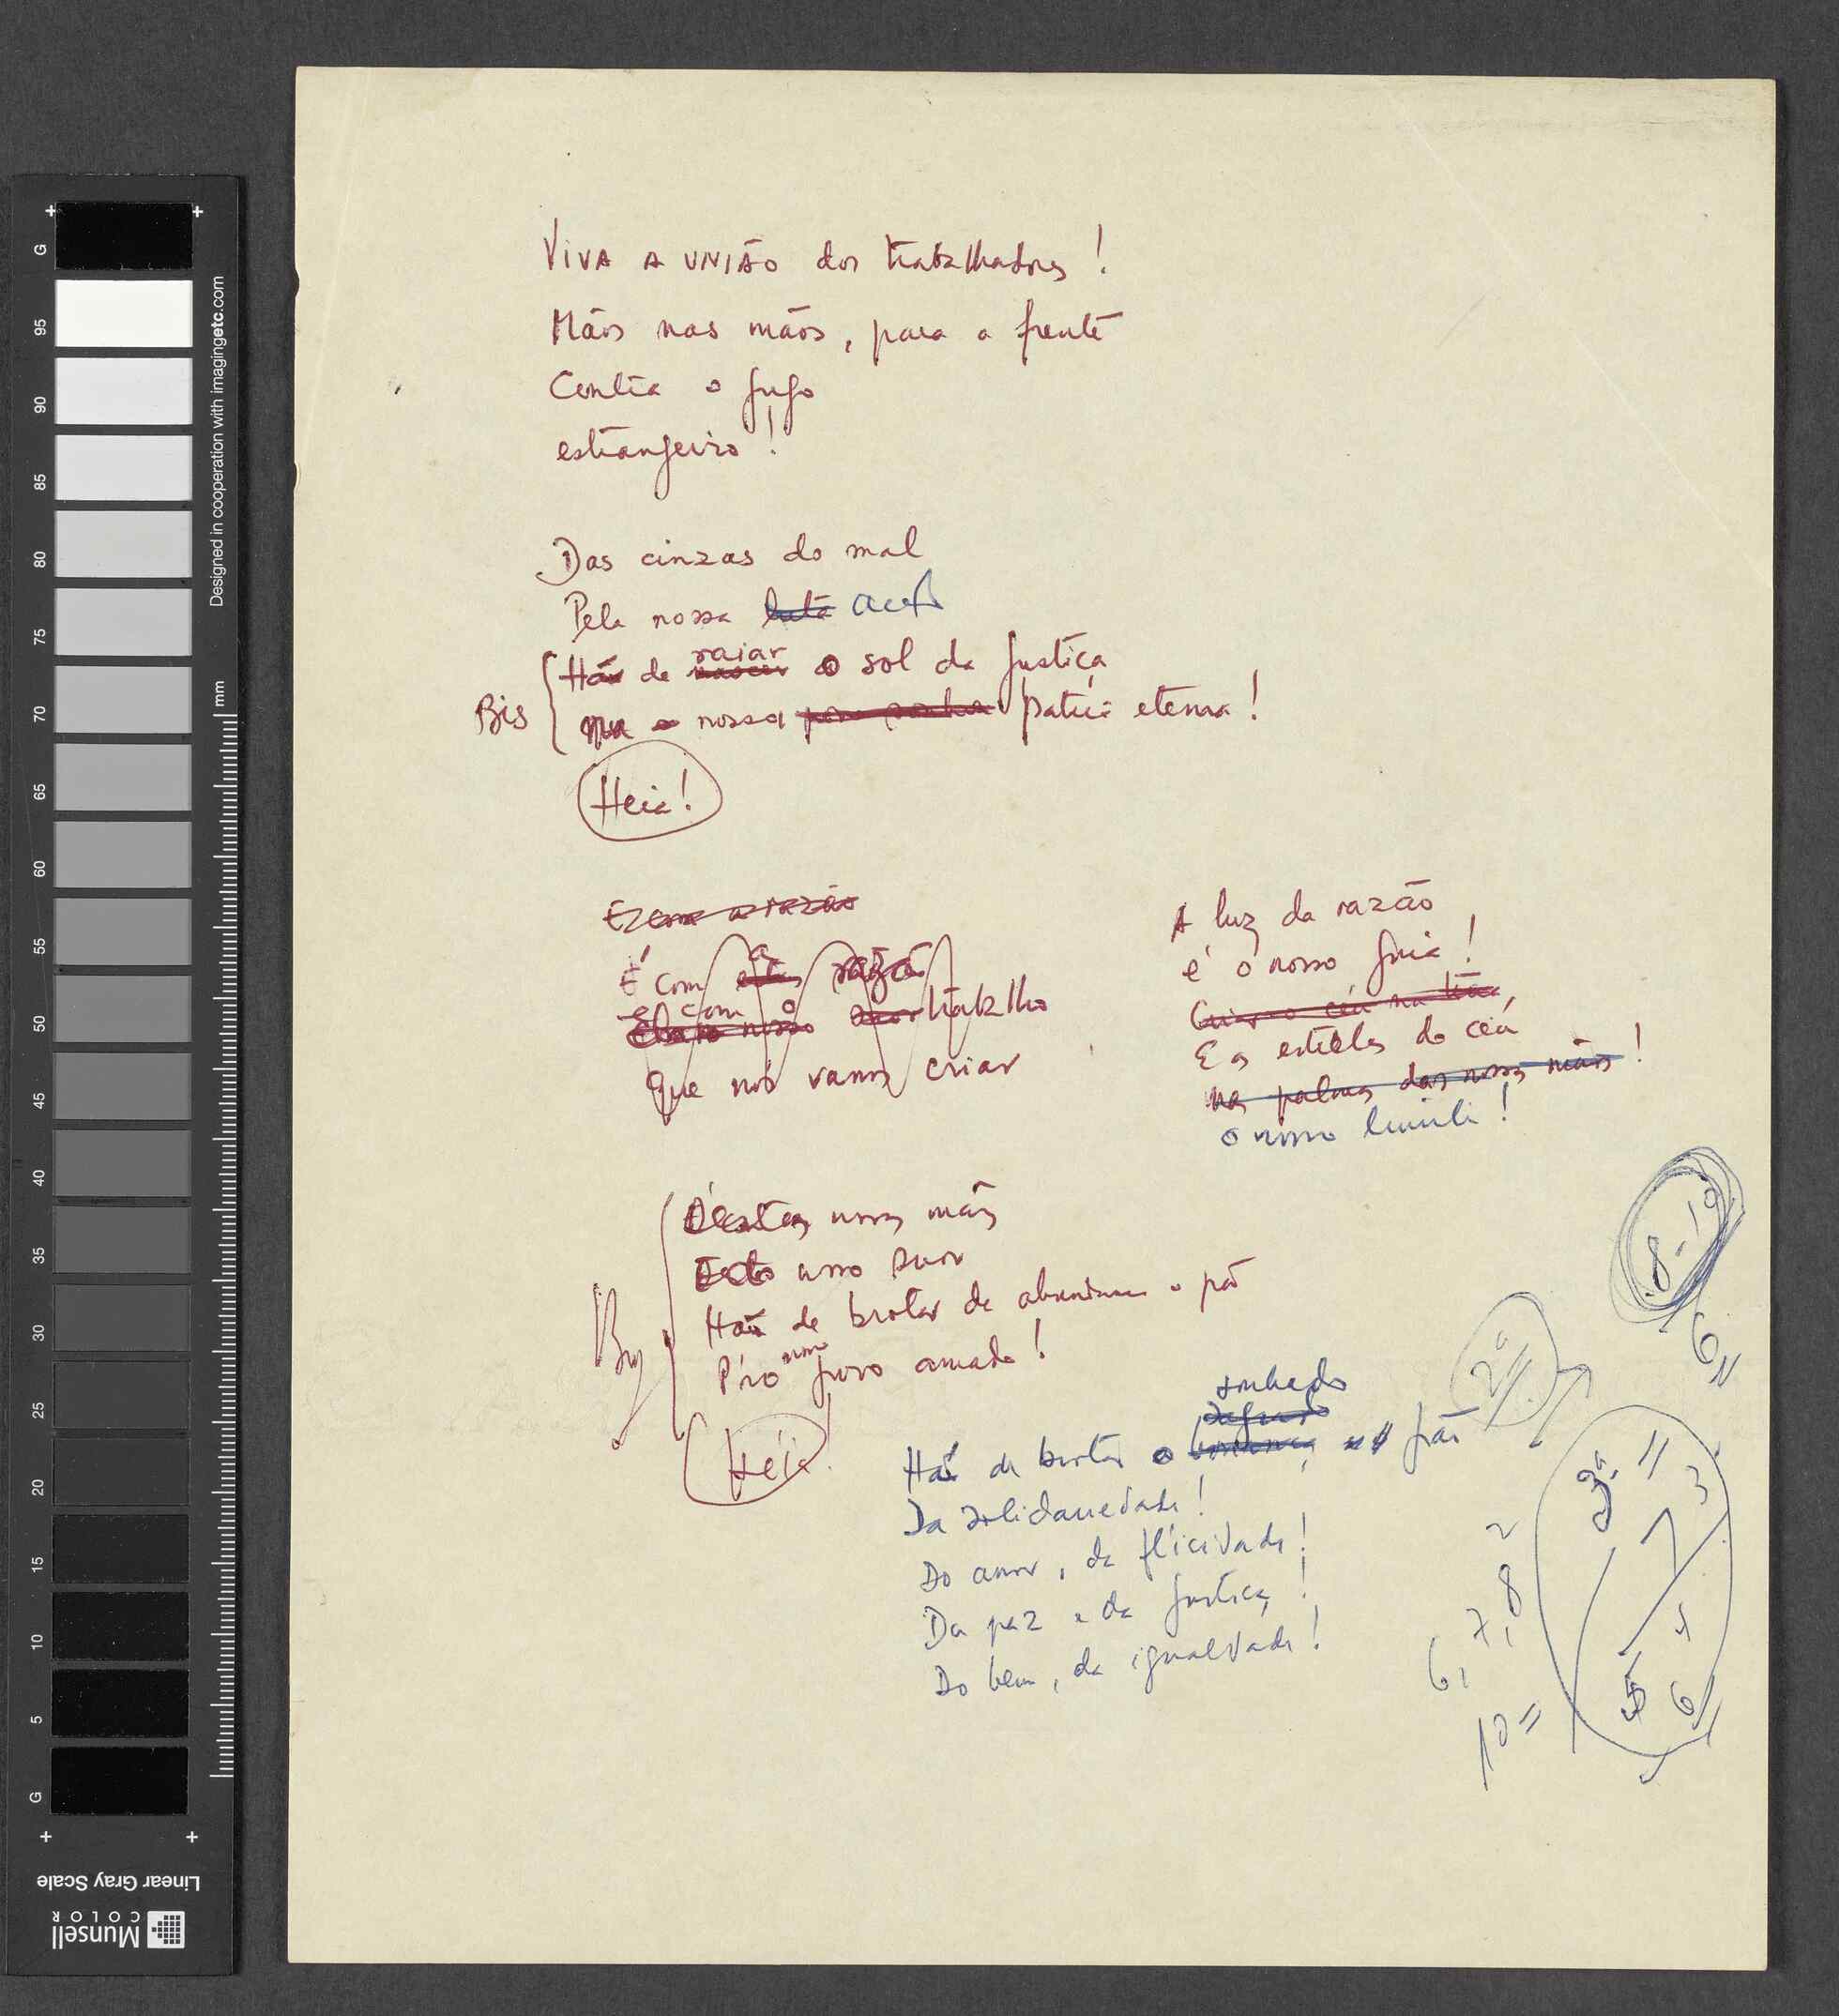 VIVA A UNIÃO dos trabalhadores!
Mãos nas mãos, para a frente
Contra o jugo
estrangeiro!
Das cinzas do mal
Pela nossa luta ação
Há de nascer raiar o sol da justiça
Bis
Na nossa pátria eterna!
Heia!
É com a razão
e com o trabalho
Que nós vamos criar
A luz da razão
é o nosso guia!
Criar o céu na
E as estrelas do céu
nas palmas das nossas mãos!
o nosso limite!
Destas nossas mãos
nosso suor
Há de brotar da abundância o pão
Bis
P'ro nosso povo amado!
Heia!
sonhado
Há de brotar o pão
Da solidariedade!
Do amor, da felicidade!
Da paz e da justiça!
Do bem, da igualdade!
8-10
6
2ª
3ª 11
7 3
2
6, 7, 8
5
5 6
10
G
95
90
85
80
75
70
65
60
55
50
45
40
35
30
25
20
15
10
5
G
mm
Designed in cooperation with imagingetc.com
Linear Gray Scale
Munsell
COLOR